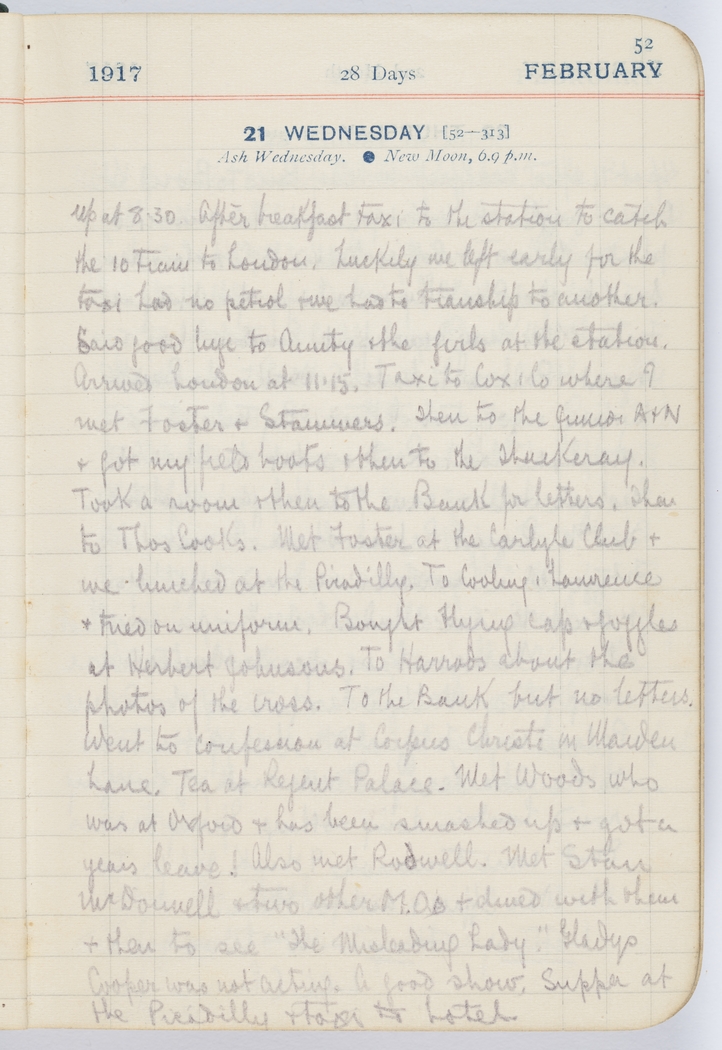 52
1917 28 Days FEBRUARY
21 WEDNESDAY [52—313]
Ash Wednesday. ● New Moon, 6.9 p.m.
Up at 8.30. After breakfast taxi to the station to catch
the 10 train to London. Luckily we left early for the
taxi had no petrol & we had to tranship to another.
Said good bye to Aunty & the girls at the station.
Arrived London at 11.15. Taxi to Cox & Co where I
met Foster & Stammers. Then to the Junior A & N
& got my field boots & then to the Thackeray.
Took a room & then to the Bank for letters. Then
to Thos Cooks. Met Foster at the Carlyle Club &
we lunched at the Picadilly. To Cooling & Lawrence
& tried on uniform. Bought flying cap & goggles
at Herbert Johnsons. To Harrods about the
photos of the cross. To the Bank but no letters.
Went to confession at Corpus Christi in Maiden
Lane. Tea at Regent Palace. Met Woods who
was at Oxford & has been smashed up & got a
years leave! Also met Rodwell. Met Stan
McDonnell & two other & dined with them
& then to see "The Misleading Lady." Gladys
Cooper was not acting. A good show. Supper at
the Picadilly & taxi to hotel.